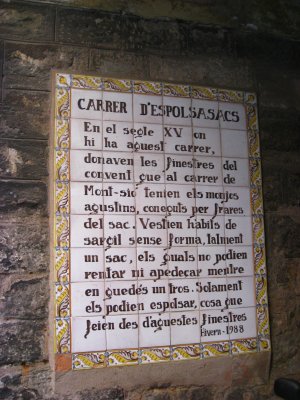 CARRER D'ESPOLSASACS
En el segle XV on
hi ha aquest carrer,
donaven les finestres del
convent que al carrer de
Mont-sió tenien els monjos
agustins, coneguts per frares
del sac. Vestien hàbits de
sargil sense forma, talment
un sac, els quals no podien
rentar ni apedeçar mentre
en quedés un tros. Solament
els podien espolsar, cosa que
feien des d'aquestes finestres
Hivern-1988